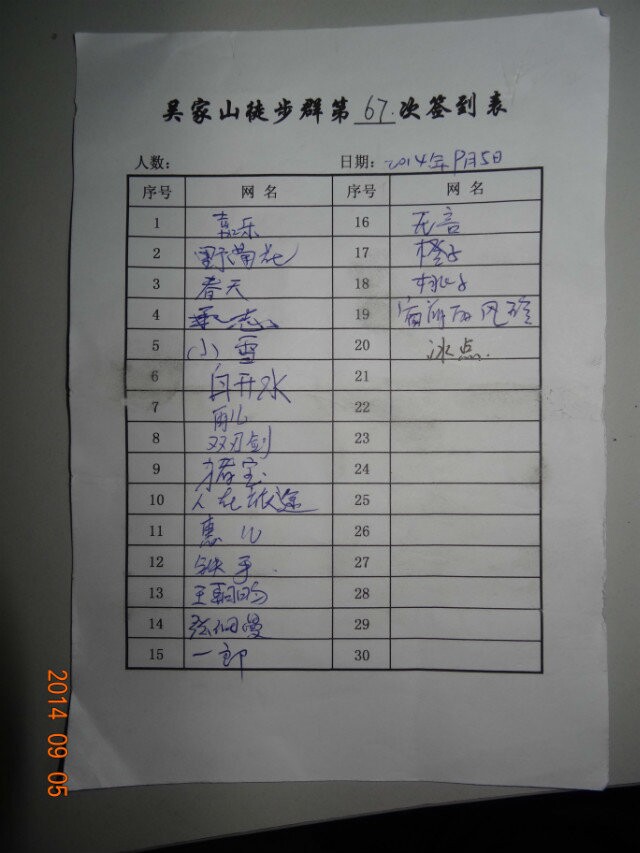 吴家山徒步群第67.次签到表
人数: 日期: 2014年9月5日
序号 网名 序号 网名
1 嘉乐 16 无言
2 野菊花 17 橙子
3 春天 18 桃子
4 19
5 小雪 20 冰点.
6 白开水 21
7 雨儿 22
8 双刃剑 23
9 24
10 人在旅途 25
11 惠儿 26
12 铁手 27
13 王朝阳 28
14 29
15 一郎 30
2014 09 05